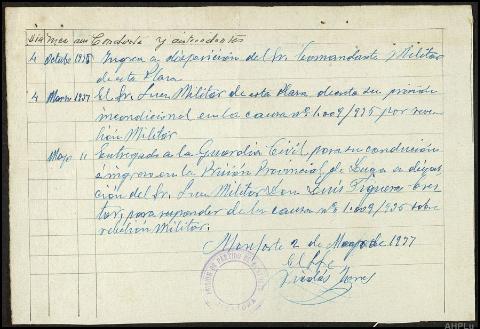 Dia Mes año Conducta y antecedentes
4 Octubre 1935 Ingresa a disposición del Sr. Comandante Militar
de esta Plaza
4 1937 El Sr. Juez Militar de esta Plaza decreta su prisión
incondicional en la causa nº 1.009/935 por rebe
lión Militar
Mayo 11 Entregado a la Guardia Civil para su conducción
é ingreso en la Prisión Provincial de Lugo a disposi
ción del Sr. Juez Militar Don Luis
para responder de la causa nº 1.009/935 sobre
rebelión Militar.
Monforte 2 de Mayo de 1937
El Jefe
Nicolás
AHPLu